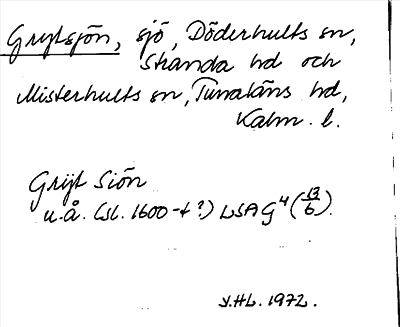 Grytsjön, sjö, Döderhults sn,
Stranda hd och
Misterhults sn, Tunaläns hd,
Kalm. l.
Grÿt Siön
u.å. (sl. 1600-t?) LSA G4 (13/6).
V.HL. 1972.